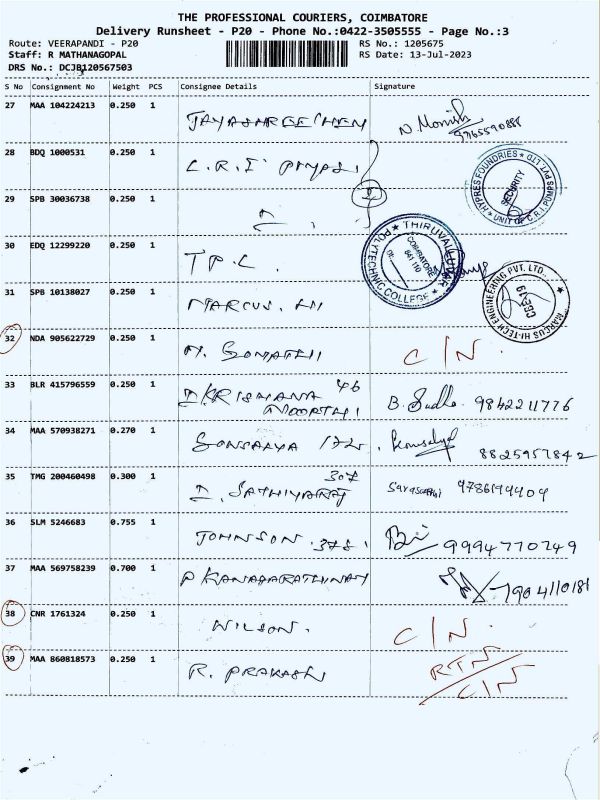 THE PROFESSIONAL COURIERS, COIMBATORE
Delivery Runsheet - P20 - Phone No.:0422-3505555 - Page No.:3
Route: VEERAPANDI - P20
RS No.: 1205675
Staff: R MATHANAGOPAL
RS Date: 13-Jul-2023
DRS No.: DCJB120567503
S No Consignment No Weight PCS Consignee Details Signature
27 MAA 104224213 0.250 1
28 BDQ 1000531 0.250 1
HYPRES FOUNDRIES
SECURITY
UNIT OF C.R.I. PUMPS PVT LTD
29 SPB 30036738 0.250 1
30 EDQ 12299220 0.250 1 T P C
THIRUVALLUVAR
POLYTECHNIC COLLEGE
COIMBATORE
641 110
31 SPB 10138027 0.250 1 MARCUS. HI
MARCUS HI-TECH ENGINEERING PVT. LTD.
CBE-19
32 NDA 905622729 0.250 1 C/N.
33 BLR 415796559 0.250 1 KRISHANA 46
MOORTHI B. Sudha 9842211776
34 MAA 570938271 0.270 1 172. 8825957842
35 TMG 200460498 0.300 1 307
SATHIYARAJ 9786194409
36 SLM 5246683 0.755 1 JOHNSON 378 9994770749
37 MAA 569758239 0.700 1 P
38 CNR 1761324 0.250 1 WILSON. C/N.
39 MAA 860818573 0.250 1 R. PRAKASH RTN
C/N